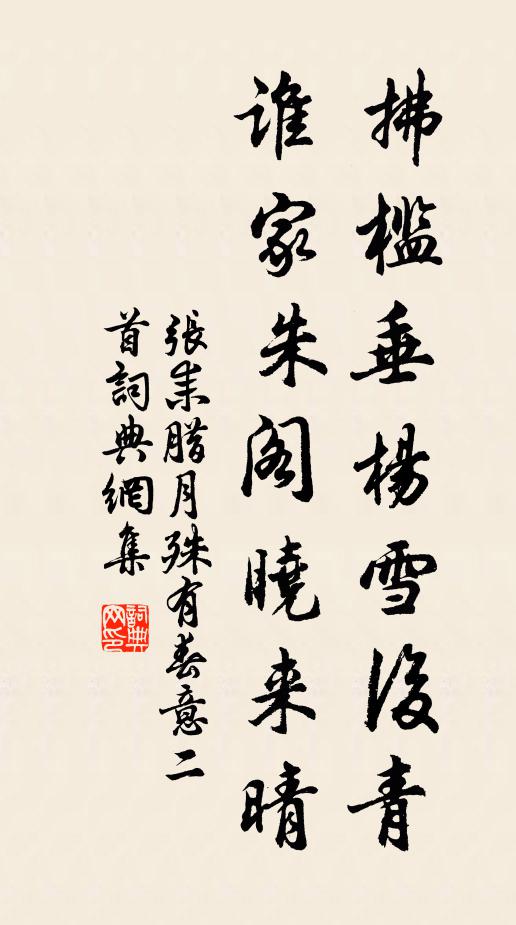 拂檻垂楊雪後青
誰家朱阁曉来晴
張耒腊月殊有春意二
首詞典網集
詞典
网印